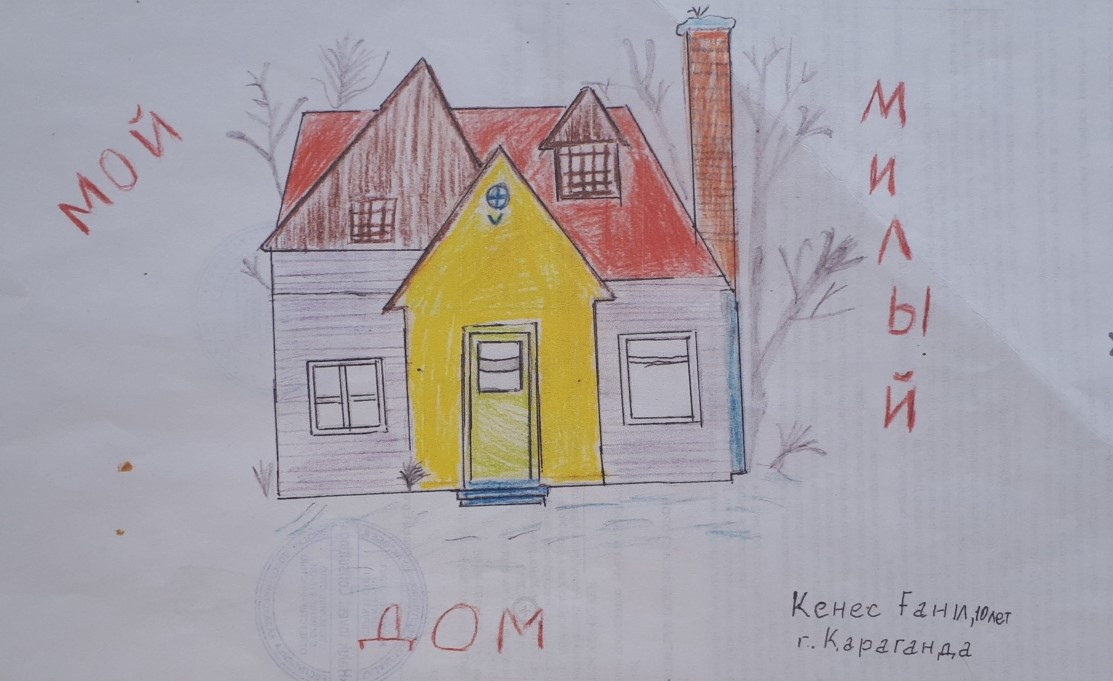 МОЙ
МИЛЫЙ
ДОМ
Кенес Ғани, 10 лет
г. Караганда